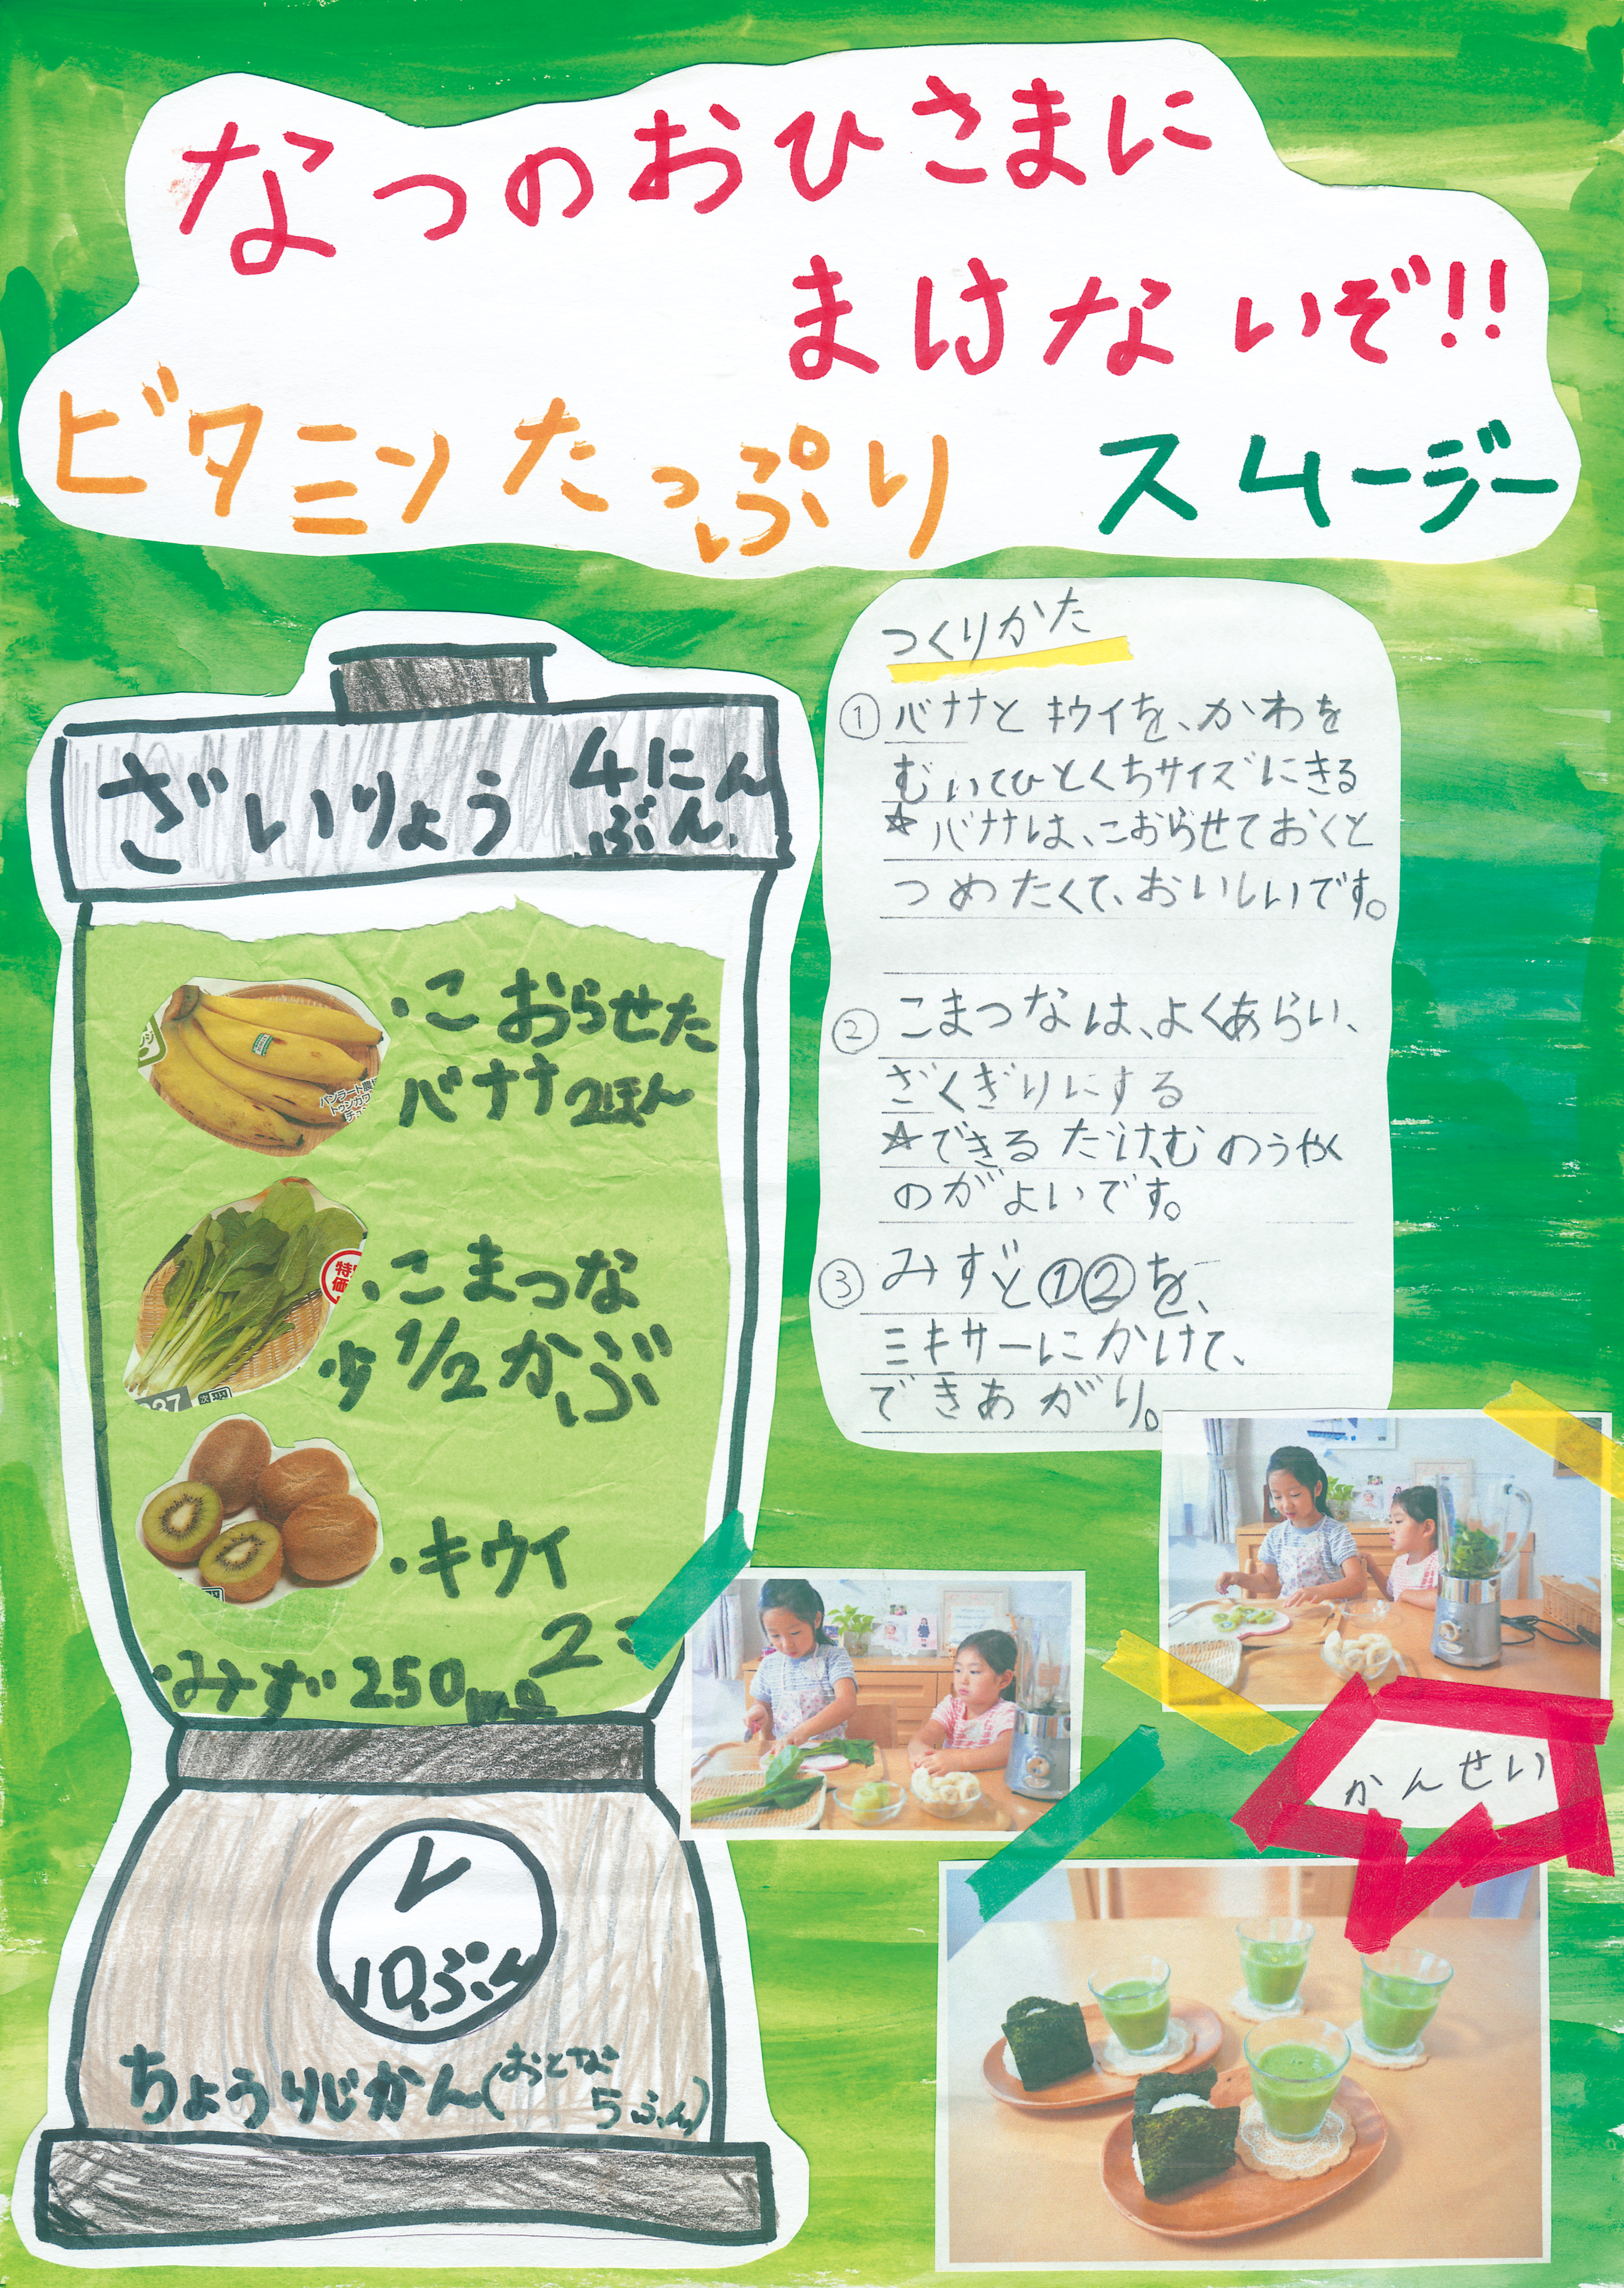 なつのおひさまに
まけないぞ!!
ビタミンたっぷり スムージー
ざいりょう 4にん
ぶん.
・こおらせた
バナナ2ほん
バンラート農
トゥンカワ
特
価
・こまつな
1/2かぶ
・キウイ
2こ
・みず250ml
10ぷん
ちょうりじかん(おとな
5ふん)
つくりかた
①バナナとキウイを、かわを
むいてひとくちサイズにきる
☆バナナは、こおらせておくと
つめたくて、おいしいです。
②こまつなは、よくあらい、
ざくぎりにする
☆できるだけ、むのうやく
のがよいです。
③みずと①②を、
ミキサーにかけて、
できあがり。
かんせい